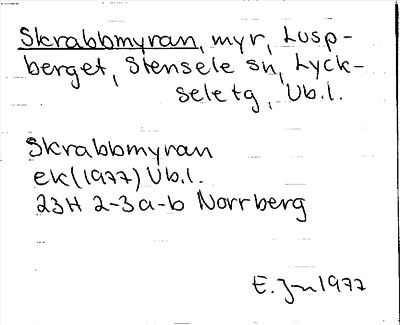 Skrabbmyran, myr, Lusp-
berget, Stensele sn, Lyck-
sele tg, Vb.l.
Skrabbmyran
ek (1977) Vb.l.
23H 2-3 a-b Norrberg
E. J-n 1977